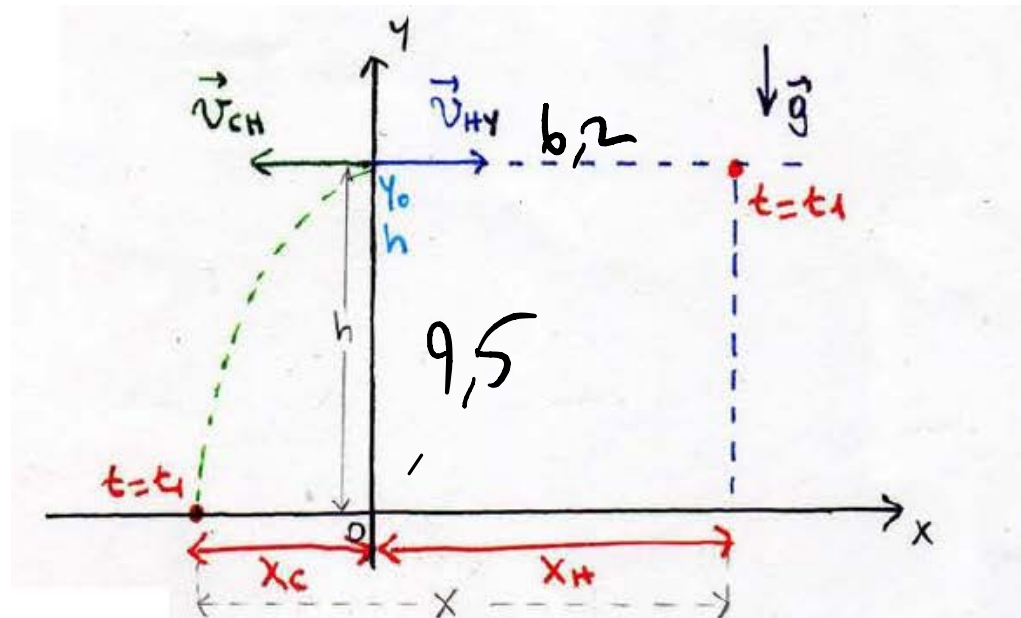 y
v⃗CH
v⃗HY
6,2
g⃗
y₀
h
t=t1
h
9,5
t=t1
O
x
XC
XH
X